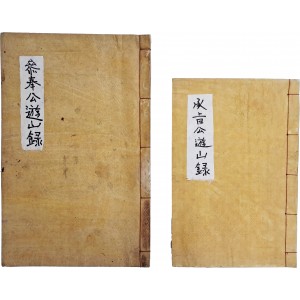 叅奉公遊山錄
承旨公遊山錄